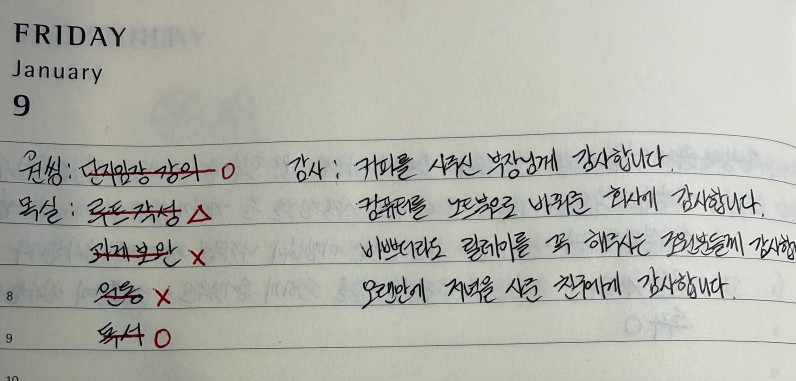 FRIDAY
January
9
원씽 : 단지임장 강의 O 감사 : 커피를 사주신 부장님께 감사합니다.
목실 : 루트 작성 △ 컴퓨터를 노트북으로 바꿔준 회사에 감사합니다.
과제 보완 X 바쁘더라도 릴레이를 꼭 해주시는 조원분들께 감사합
8 운동 X 오랜만에 저녁을 사준 친구에게 감사합니다.
9 독서 O
10